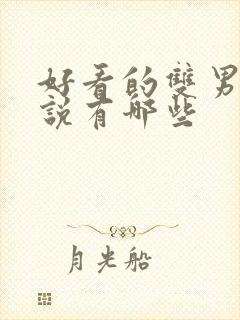 好看的雙男
說有哪些
月光船